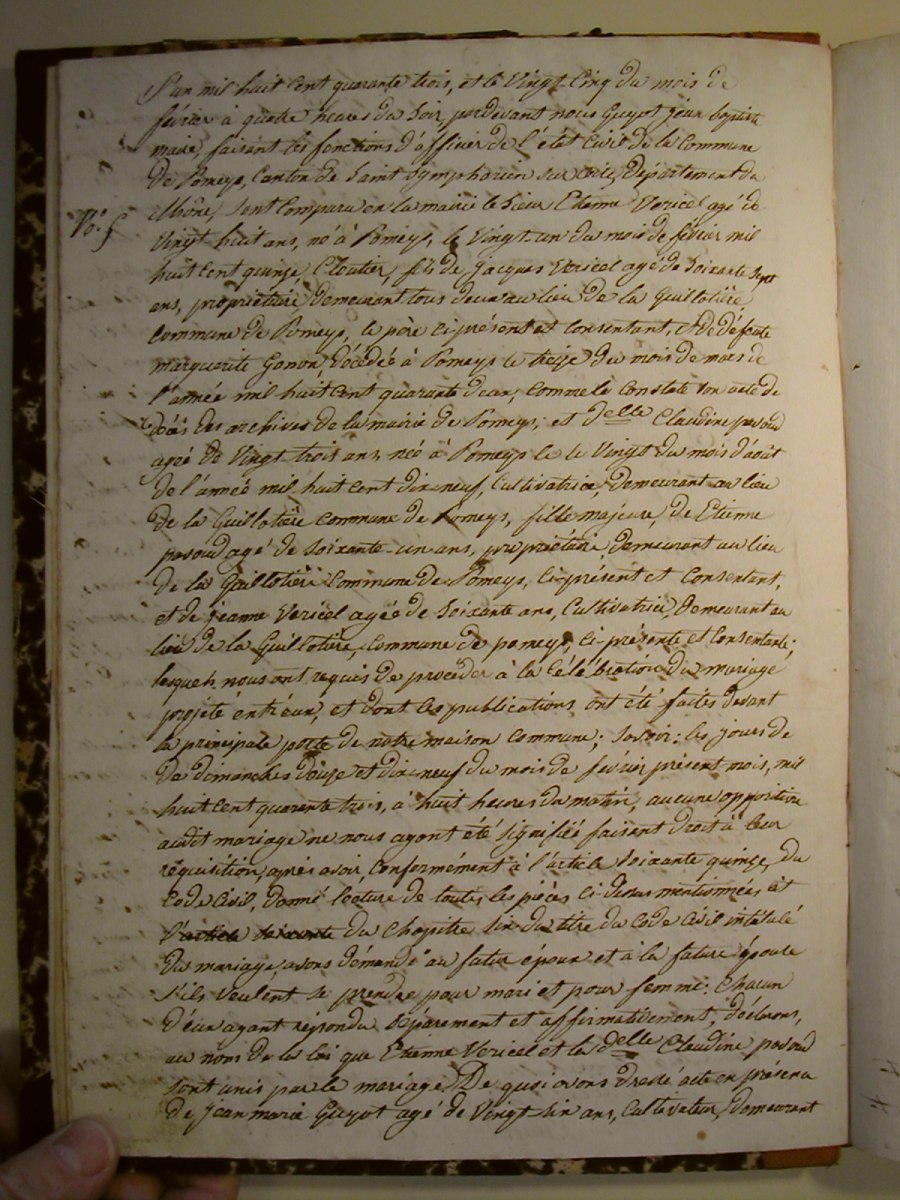 L'an mil huit cent quarante trois, et le vingt cinq du mois de
février à quatre heures du soir, pardevant nous Guyot jean baptiste
maire, faisant les fonctions d'officier de l'état civil de la commune
de Pomeys, canton de Saint Symphorien sur coise, département du
Rhône, sont comparu en la mairie le sieur Etienne Vericel agé de
No. 5
vingt huit ans, né à Pomeys, le vingt-un du mois de février mil
huit cent quinze, cloutier, fils de jacques Vericel agé de soixante sept
ans, propriétaire demeurant tous deux au lieu de la Guillotière
commune de Pomeys, le père ci présent et consentant, et de défunte
marguerite Gonon, décédée à Pomeys le treize du mois de mars de
l'année mil huit cent quarante deux, comme le constate son acte de
décès des archives de la mairie de Pomeys; et delle Claudine
ageé de vingt trois ans, née à Pomeys le le vingt du mois d'août
de l'année mil huit cent dix neuf, cultivatrice, demeurant au lieu
de la Guillotière commune de Pomeys, fille majeure, de Etienne
agé de soixante-un ans, propriétaire demeurant au lieu
de la Guillotière commune de Pomeys, ci-présent et consentant,
et de jeanne Vericel agée de soixante ans, cultivatrice, demeurant au
lieu de la Guillotière, commune de pomeys, ci-présente et consentante;
lesquels nous ont requis de procéder à la célébration du mariage
projeté entr'eux, et dont les publications ont été faites devant
la principale porte de notre maison commune; savoir: les jours de
de dimanches douze et dix neuf du mois de février présent mois, mil
huit cent quarante trois, à huit heures du matin, aucune opposition
audit mariage ne nous ayant été signifiée faisant droit à leur
réquisition, après avoir, conformément à l'article soixante quinze, du
code civil, donné lecture de toutes les pièces ci-dessus mentionnées et
du chapitre six du titre du code civil intitulé
du mariage, avons demandé au futur époux et à la future épouse
s'ils veulent se prendre pour mari et pour femme: chacun
d'eux ayant répondu séparement et affirmativement, déclarons,
au nom de la loi que Etienne Vericel et la delle Claudine
sont unis par le mariage. De quoi avons dressé acte en présence
de Jean marie Guyot agé de vingt six ans, cultivateur, demeurant